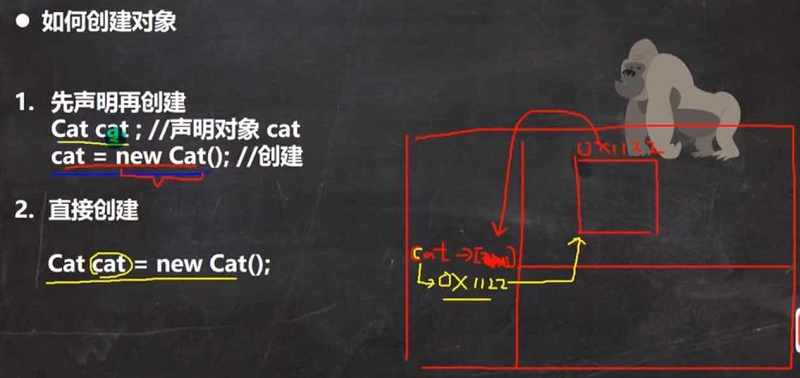 ● 如何创建对象
1. 先声明再创建
Cat cat ; //声明对象 cat
cat = new Cat(); //创建
2. 直接创建
Cat cat = new Cat();
0X1122
cat →[
0X1122